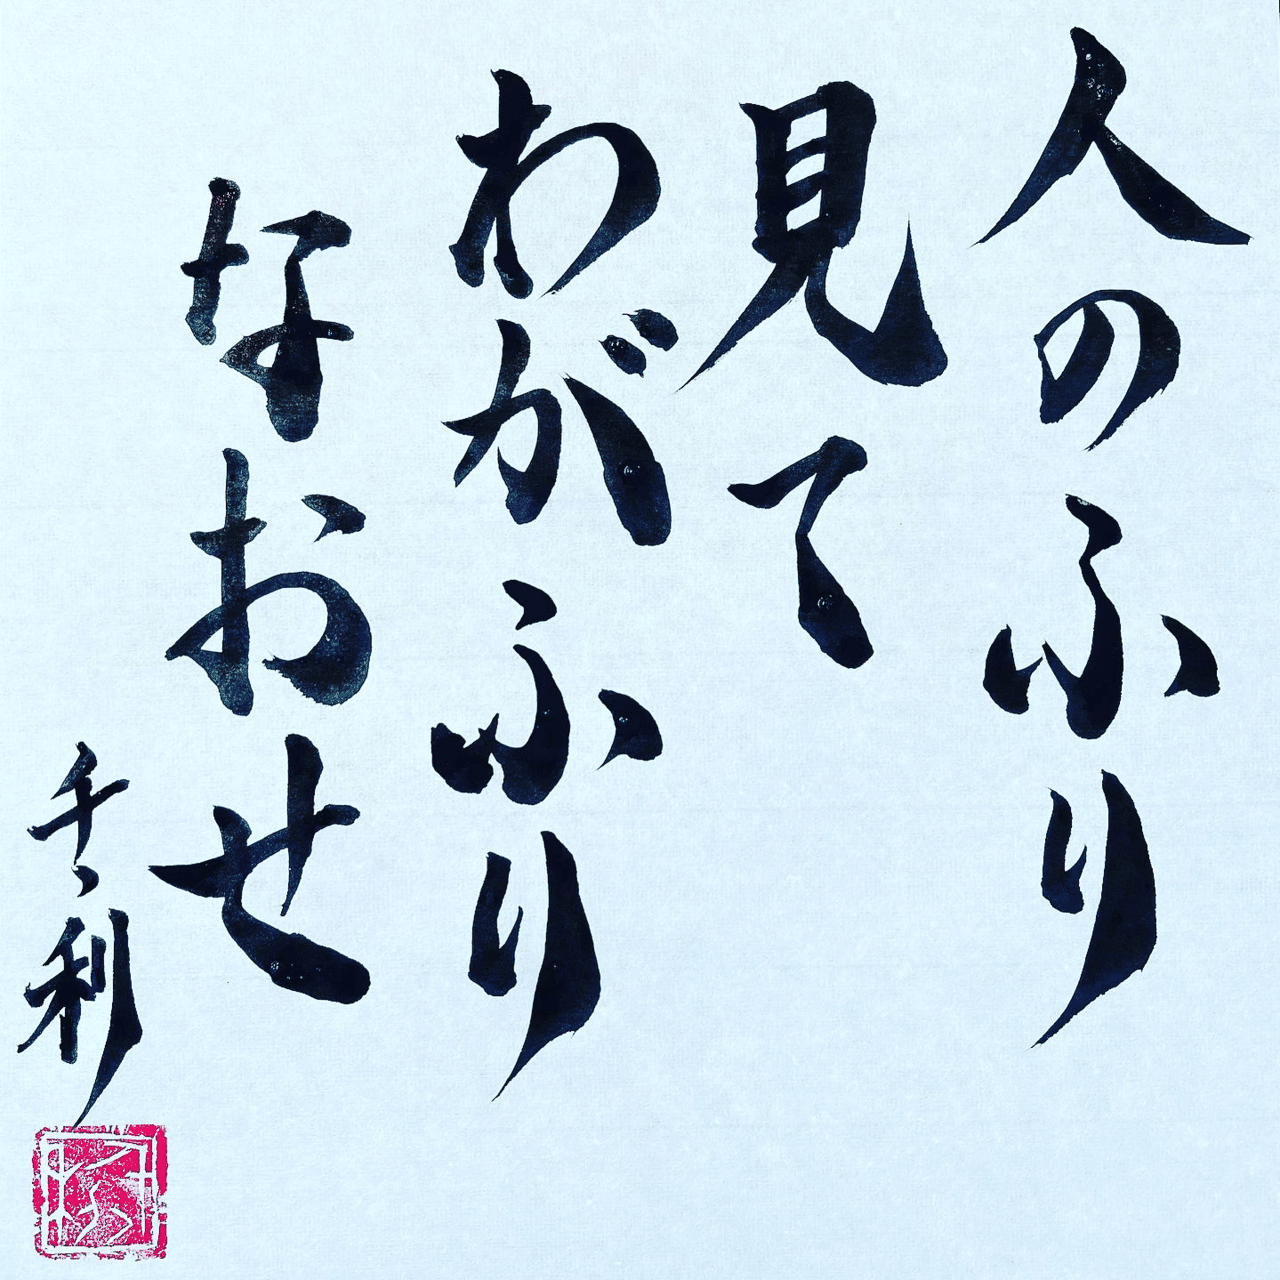 人のふり
見て
わがふり
なおせ
千利